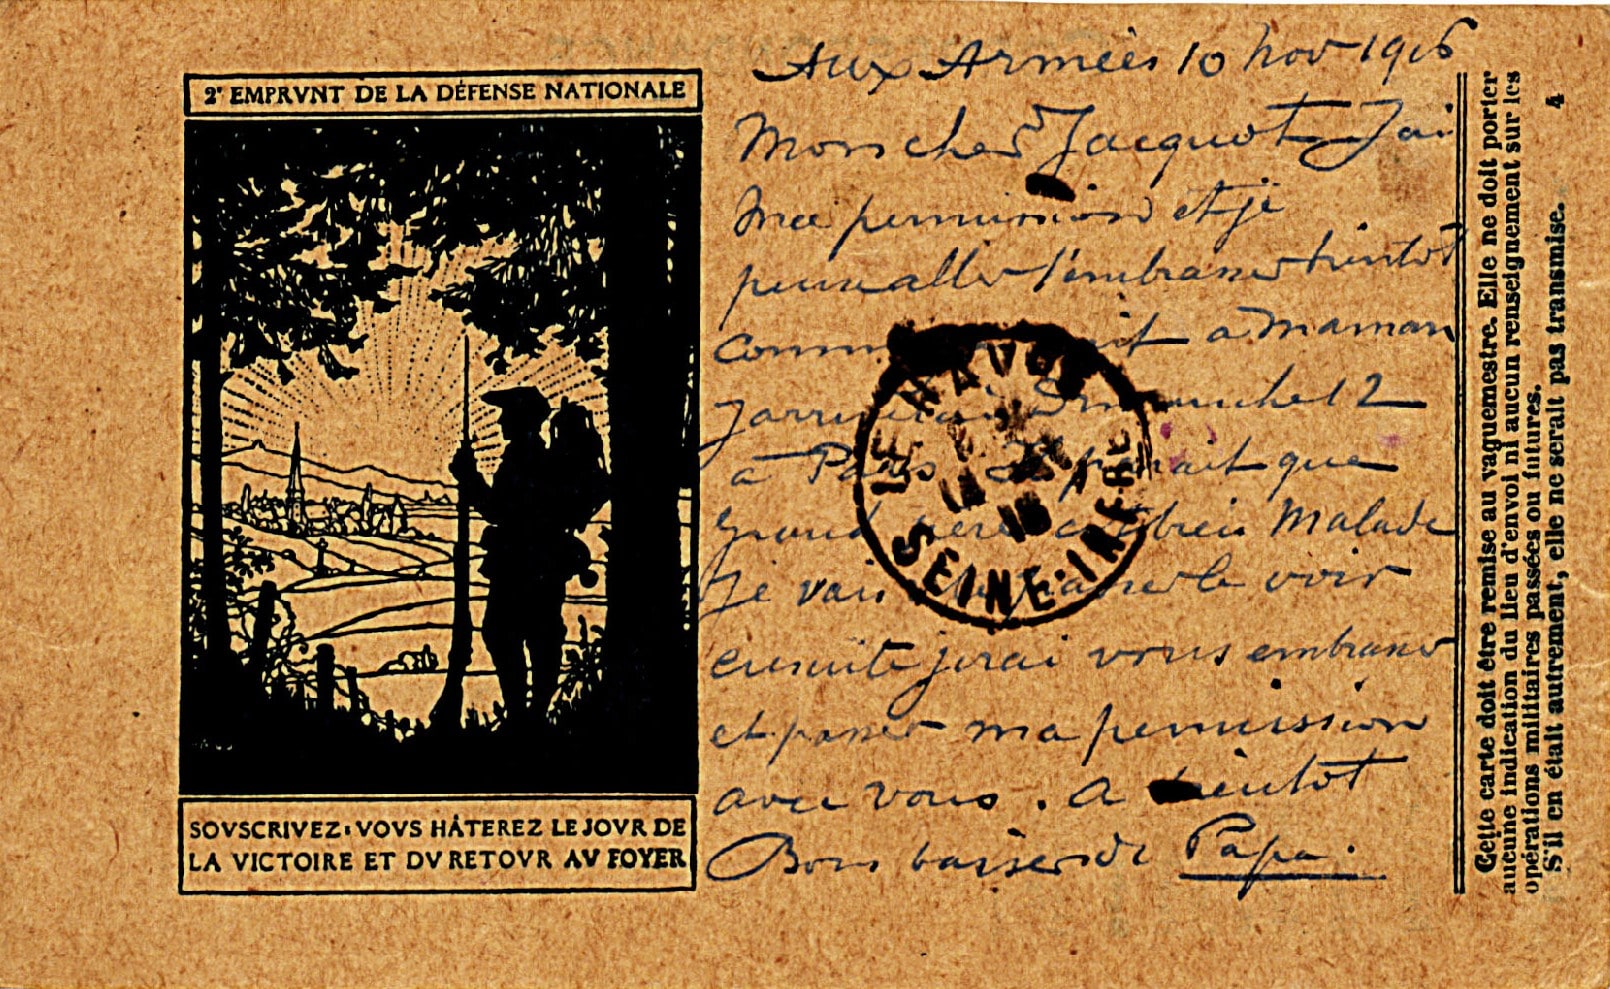 2e EMPRVNT DE LA DÉFENSE NATIONALE
SOVSCRIVEZ : VOVS HÂTEREZ LE JOVR DE
LA VICTOIRE ET DV RETOVR AV FOYER
Aux Armées 10 Nov 1916
Mon cher Jacquot Jai
ma permission et je
pense aller t'embrasser bientôt
à Maman
Dimanche 12
à Paris Il parait que
Grand père est bien Malade
Je vais le voir
ensuite j'irai vous embrasser
et passer ma permission
avec vous. A bientot
Bons baisers de Papa.
LE HAVRE
SEINE-INFRE
Cette carte doit être remise au vaguemestre. Elle ne doit porter
aucune indication du lieu d'envoi ni aucun renseignement sur les
opérations militaires passées ou futures.
S'il en était autrement, elle ne serait pas transmise. 4